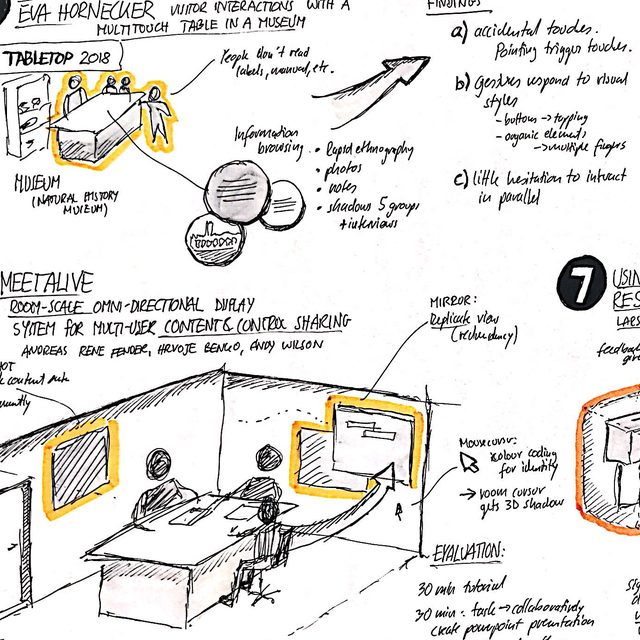 EVA HORNECKER VISITOR INTERACTIONS WITH A
MULTITOUCH TABLE IN A MUSEUM
TABLETOP 2018
People don't read
labels, manual, etc.
MUSEUM
(NATURAL HISTORY
MUSEUM)
Information
browsing
• Rapid ethnography
• photos
• notes
• shadows 5 groups
+ interviews
FINDINGS
a) accidental touches.
Pointing trigger touches.
b) Gestures respond to visual
styles
- buttons → tapping
- organic elements
→ multiple fingers
c) little hesitation to interact
in parallel
MEETALIVE
ROOM-SCALE OMNI-DIRECTIONAL DISPLAY
SYSTEM FOR MULTI-USER CONTENT & CONTROL SHARING
ANDREAS RENE FENDER, HRVOJE BENKO, ANDY WILSON
content
MIRROR:
Replicate view
(redundancy)
Mousecursor:
colour coding
for identity
→ room cursor
gets 3D shadow
EVALUATION:
30 min tutorial
30 min: task → collaboratively
create powerpoint presentation
7
USIN
RES
LARS
feedba